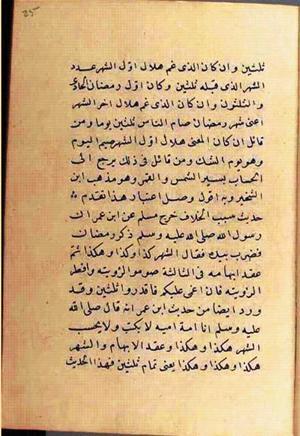 ٢٥
ثلثين وان كان الذى غم هلال اول الشهر عدد
الشهر الذى قبله ثلثين وكان اول رمضان الحادى
والثلثون وان كان الذى غم هلال اخر الشهر
اعنى شهر رمضان صام الناس ثلثين يوما ومن
قائل ان كان المغمى هلال اول الشهر صيم اليوم
وهو يوم الشك ومن قائل فى ذلك يرجع الى
الحساب بسير الشمس والقمر وهو مذهب ابن
الشخير وبه اقول وصل اعتبار هذا تقدم
حديث سبب الخلاف خرج مسلم عن ابن عمر ان
رسول الله صلى الله عليه وسلم ذكر رمضان
فضرب بيده فقال الشهر كذا وكذا وهكذا ثم
عقد ابهامه فى الثالثة صوموا لرؤيته وافطروا
لرؤيته فان اغمى عليكم فاقدروا ثلثين وقد
ورد ايضا من حديث ابن عمر انه قال صلى الله
عليه وسلم انا امة امية لا نكتب ولا نحسب
الشهر هكذا وهكذا وهكذا وعقد الابهام والشهر
هكذا وهكذا وهكذا يعنى تمام ثلثين فهذا الحديث